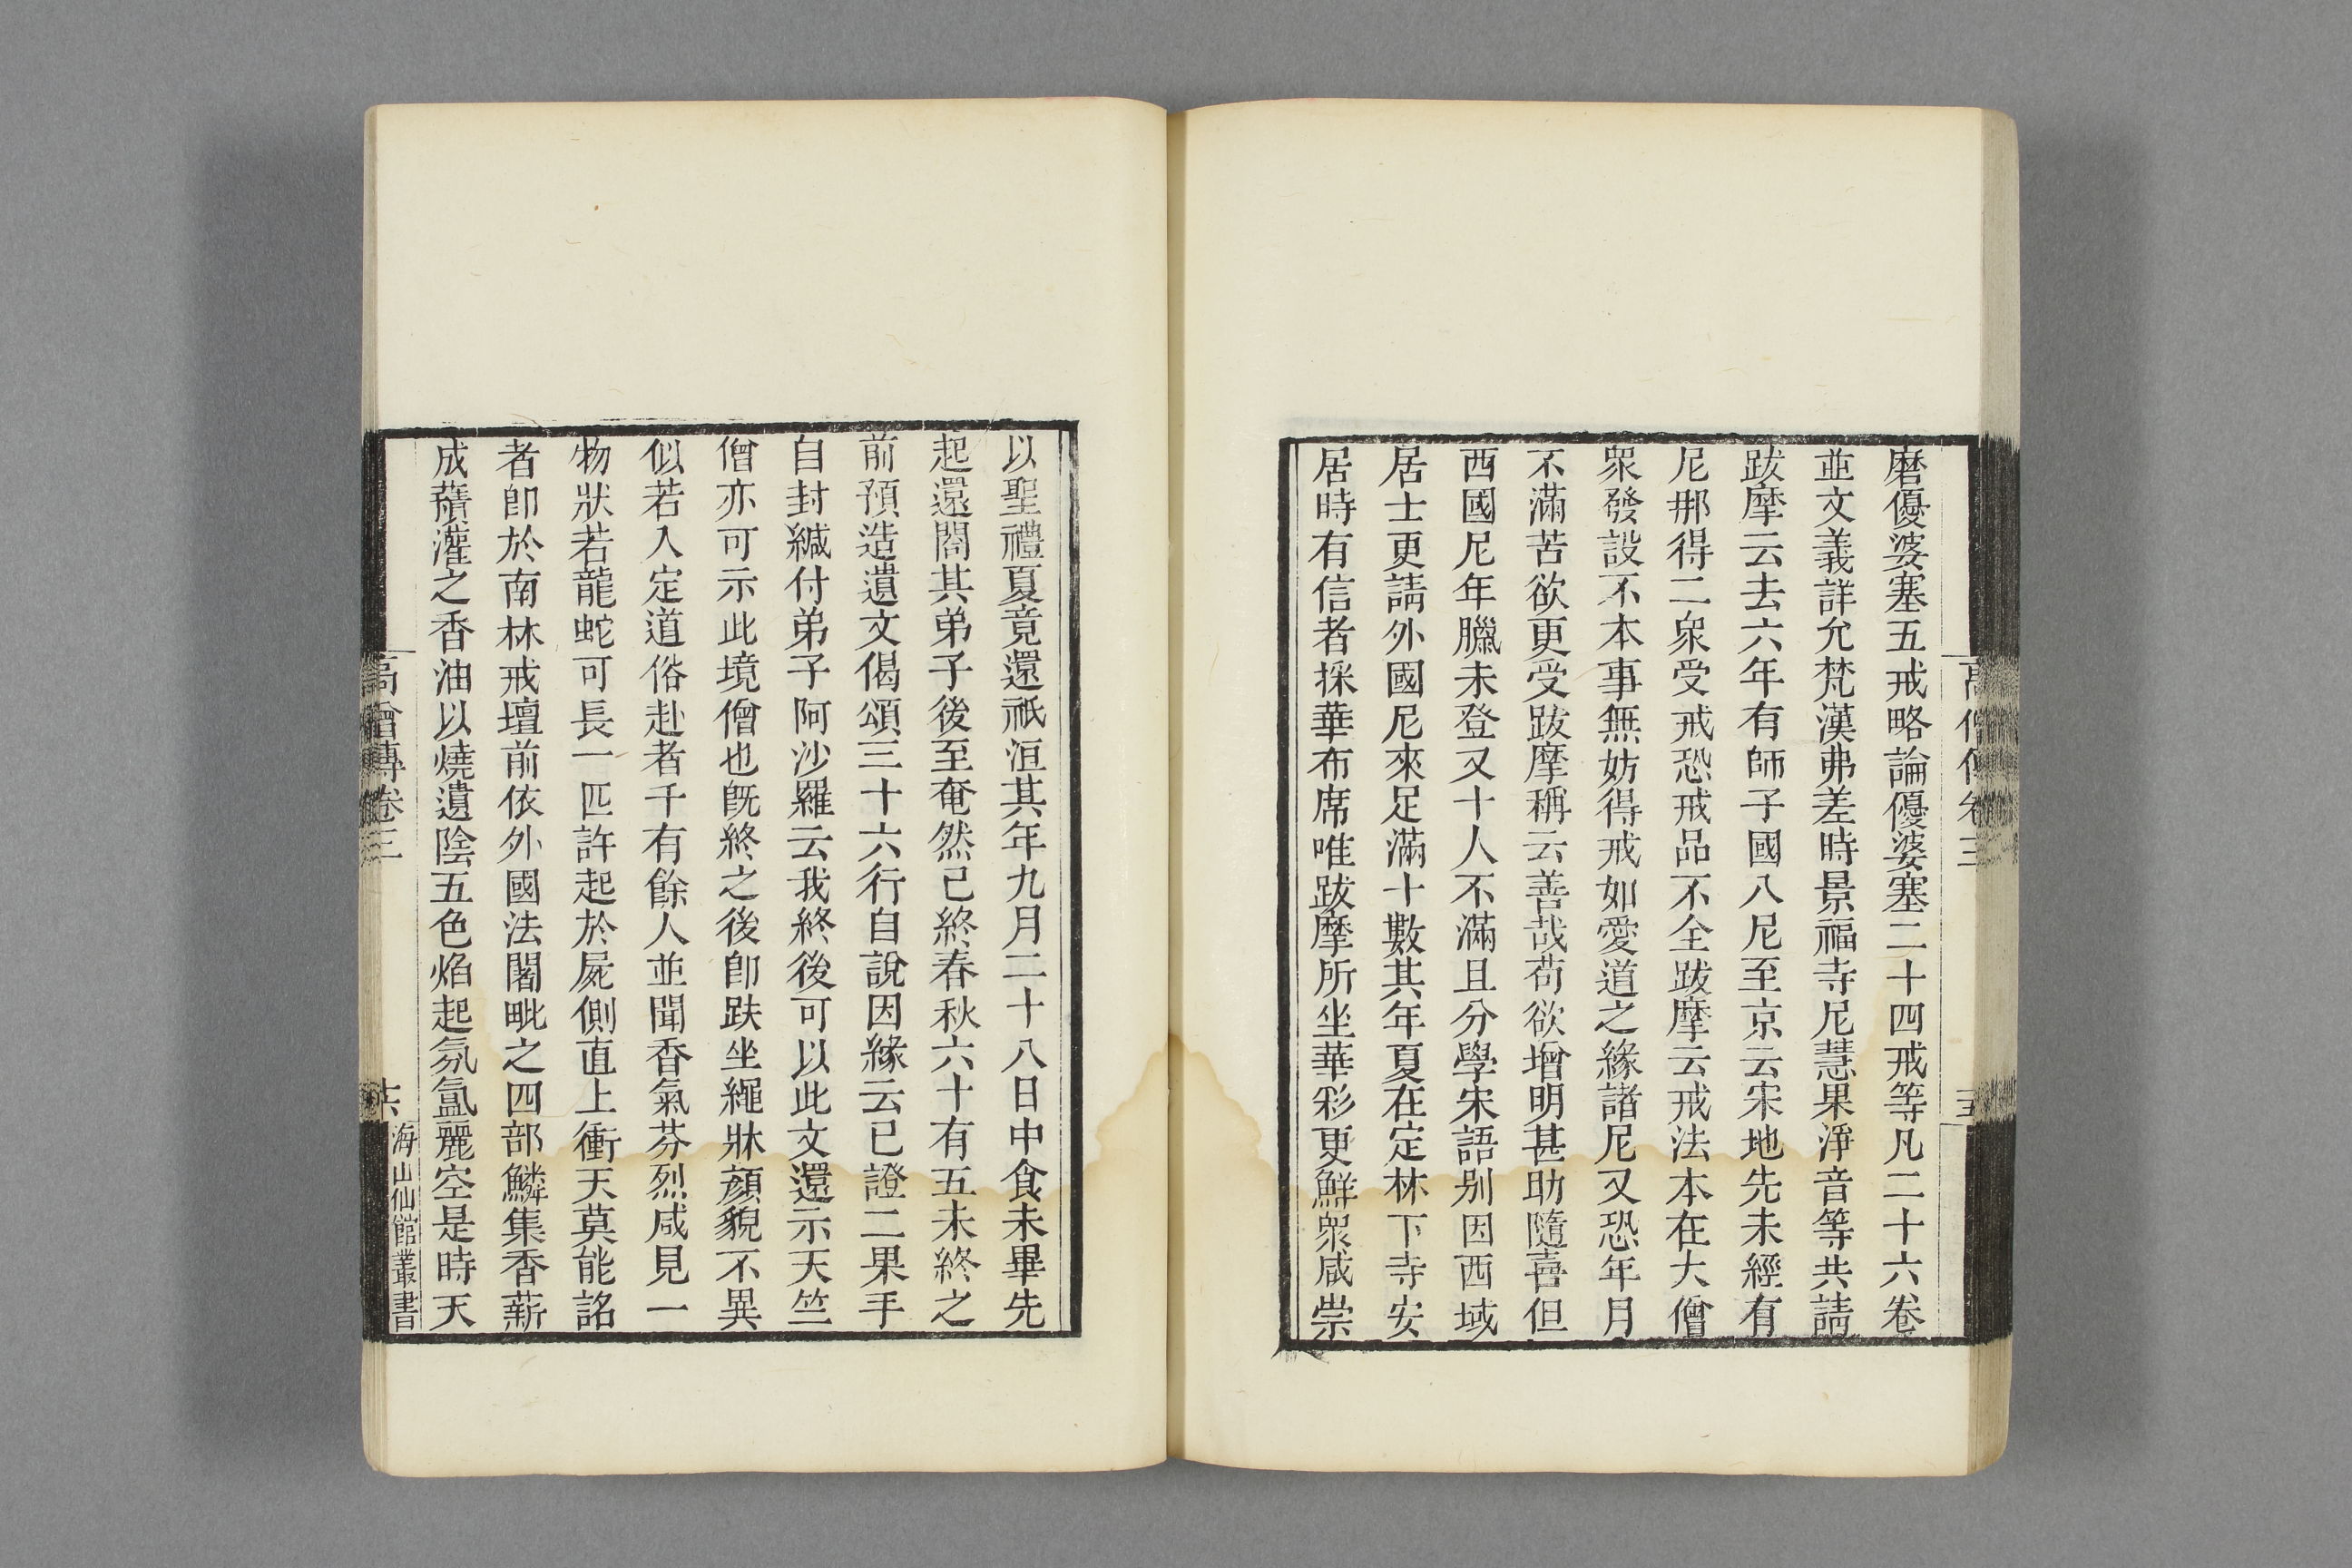 高僧傳卷三
磨優婆塞五戒略論優婆塞二十四戒等凡二十六卷
並文義詳允梵漢弗差時景福寺尼慧果淨音等共請
跋摩云去六年有師子國八尼至京云宋地先未經有
尼那得二衆受戒恐戒品不全跋摩云戒法本在大僧
衆發設不本事無妨得戒如愛道之緣諸尼又恐年月
不滿苦欲更受跋摩稱云善哉苟欲增明甚助隨喜但
西國尼年臘未登又十人不滿且分學宋語别因西域
居士更請外國尼來足滿十數其年夏在定林下寺安
居時有信者採華布席唯跋摩所坐華彩更鮮衆咸崇
以聖禮夏竟還祇洹其年九月二十八日中食未畢先
起還閣其弟子後至奄然已終春秋六十有五未終之
前預造遺文偈頌三十六行自說因緣云已證二果手
自封緘付弟子阿沙羅云我終後可以此文還示天竺
僧亦可示此境僧也旣終之後卽趺坐繩牀顔貌不異
似若入定道俗赴者千有餘人並聞香氣芬烈咸見一
物狀若龍蛇可長一匹許起於屍側直上衝天莫能詺
者卽於南林戒壇前依外國法闍毗之四部鱗集香薪
成𧂐灌之香油以燒遺陰五色焰起氛氳麗空是時天
高僧傳卷三
海山仙館叢書